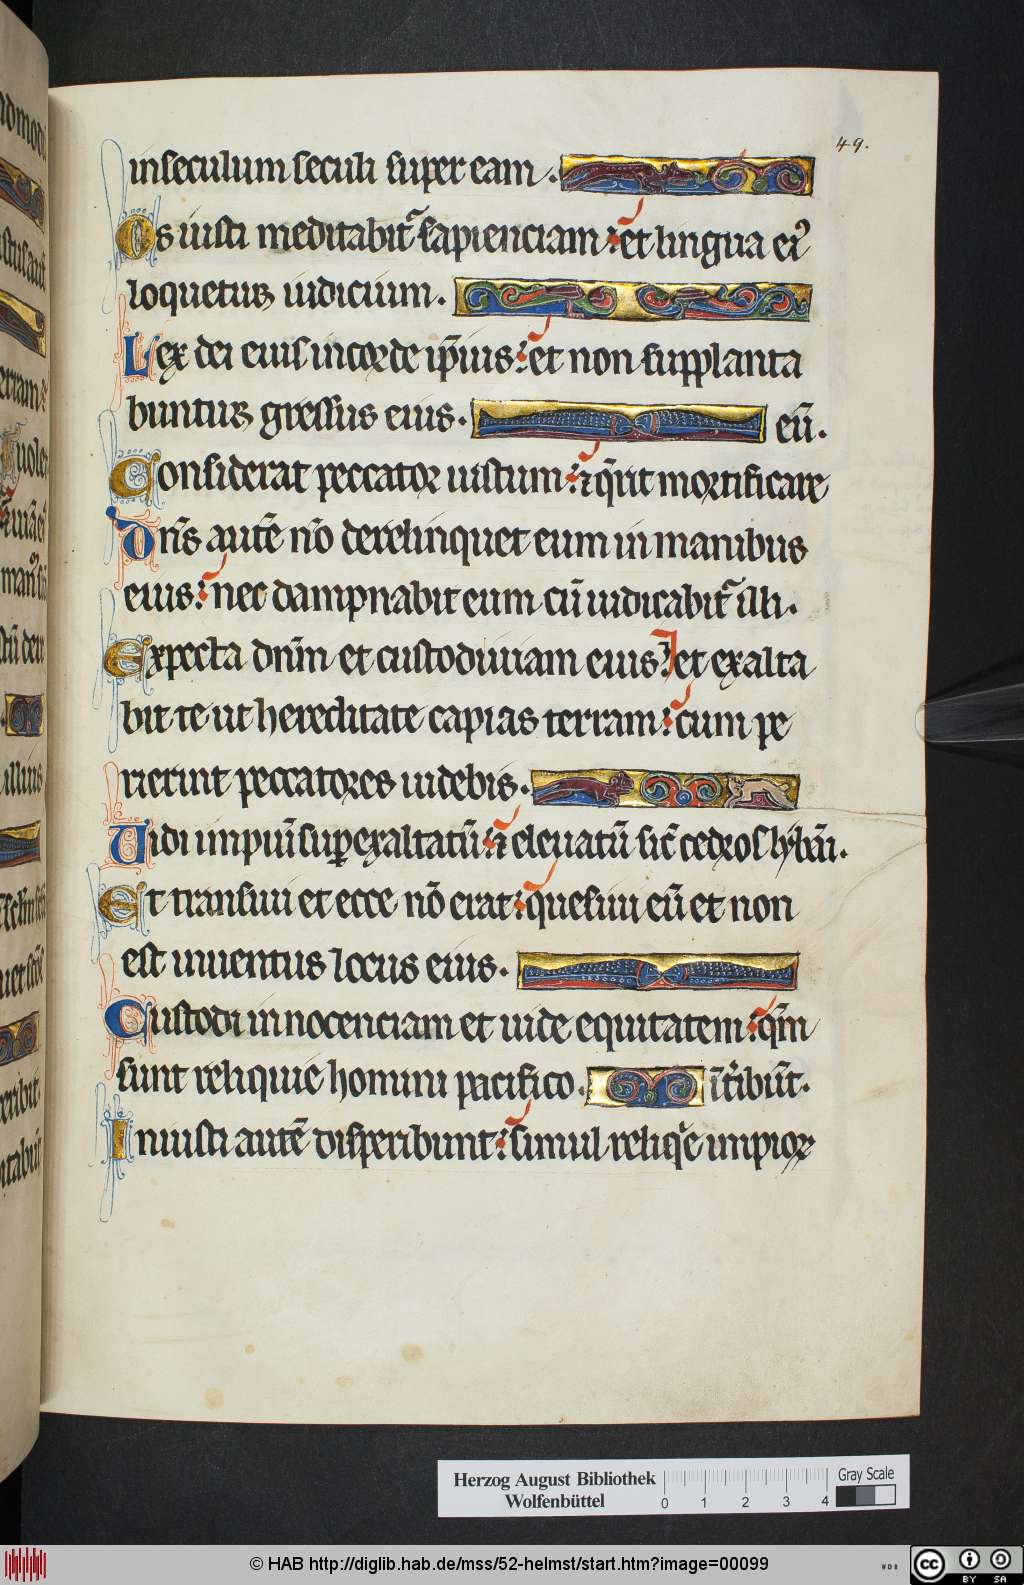 49.
in seculum seculi super eam.
Os iusti meditabit᷑ sapienciam: et lingua ei᷒
loquetur iudicium.
Lex dei eius in corde ip̄ius: et non supplanta
buntur gressus eius. eū.
Considerat peccator iustum: ⁊ q̄rit mortificare
Dn̄s autē nō derelinquet eum in manibus
eius: nec dampnabit eum cū iudicabit᷑ illi.
Expecta dn̄m et custodi uiam eius: et exalta
bit te ut hereditate capias terram: cum pe
rierint peccatores uidebis.
Uidi impiū sup̱exaltatū: ⁊ eleuatū sic̄ cedros lybāi.
Et transiui et ecce nō erat: quesiui eū et non
est inuentus locus eius.
Custodi innocenciam et uide equitatem: qm̄
sunt reliquie homini pacifico.
Iniusti autē disperibunt: simul reliq̄e impioꝝ īt᷑ibūt.
Herzog August Bibliothek
Wolfenbüttel
0 1 2 3 4
Gray Scale
© HAB http://diglib.hab.de/mss/52-helmst/start.htm?image=00099
WDB
cc BY SA